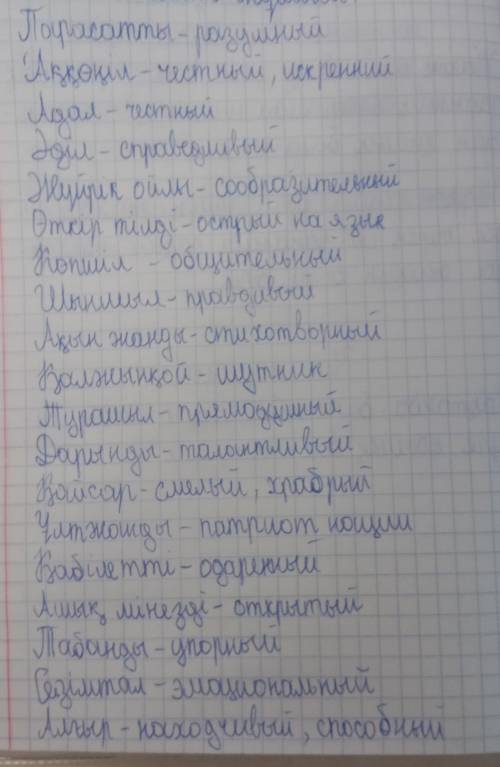 Парасатты - разумный
Аққөңіл - честный, искренний
Адал - честный
Әділ - справедливый
Жүйрік ойлы - сообразительный
Өткір тілді - острый на язык
Көпшіл - общительный
Шыншыл - правдивый
Ақын жанды - стихотворный
Қалжыңқой - шутник
Турашыл - прямодушный
Дарынды - талантливый
Қайсар - смелый, храбрый
Ұлтжанды - патриот нации
Қабілетті - одаренный
Ашық мінезді - открытый
Табанды - упорный
Сезімтал - эмоциональный
Алғыр - находчивый, способный